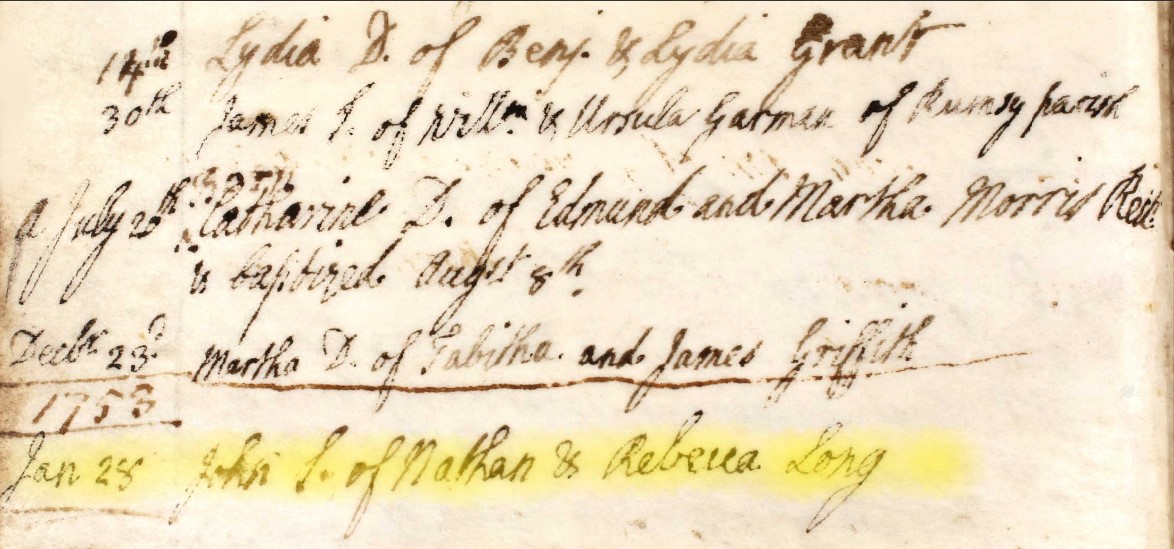 14th Lydia D. of Benj. & Lydia Grant
30th James S. of Willm. & Ursula Garman of Rumsy parish
July 20th Catharine D. of Edmund and Martha Morris
& baptized Augst 8th.
Decbr 23d Martha D. of Tabitha and James Griffith
1753
Jan 28 John S. of Nathan & Rebecca Long